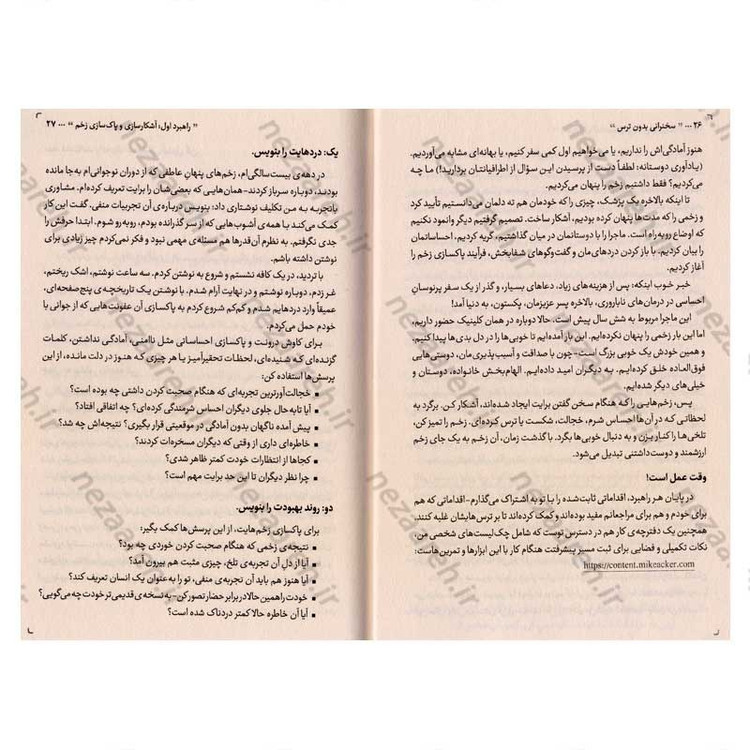 ۲۶ ... « سخنرانی بدون ترس »
هنوز آمادگی‌اش را نداریم، یا می‌خواهیم اول کمی سفر کنیم، یا بهانه‌ای مشابه می‌آوردیم.
(یادآوری دوستانه: لطفاً دست از پرسیدن این سؤال از اطرافیانتان بردارید!) ما چه
می‌کردیم؟ فقط داشتیم زخم را پنهان می‌کردیم.
تا اینکه بالاخره یک پزشک، چیزی را که خودمان هم ته دلمان می‌دانستیم تأیید کرد
و زخمی را که مدت‌ها پنهان کرده بودیم، آشکار ساخت. تصمیم گرفتیم دیگر وانمود نکنیم
که اوضاع روبه‌راه است. ماجرا را با دوستانمان در میان گذاشتیم، گریه کردیم، احساساتمان
را بیان کردیم. با باز کردن دردهای‌مان و گفت‌وگوهای شفابخش، فرآیند پاکسازی زخم را
آغاز کردیم.
خبر خوب اینکه: پس از هزینه‌های زیاد، دعاهای بسیار، و گذر از یک سفر پرنوسانِ
احساسی در درمان‌های ناباروری، بالاخره پسر عزیزمان، پکستون، به دنیا آمد!
این ماجرا مربوط به شش سال پیش است. حالا دوباره در همان کلینیک حضور داریم،
اما این بار زخمی را پنهان نکرده‌ایم. این بار آمده‌ایم تا خوبی‌ها را در دل بدی‌ها پیدا کنیم.
و همین خودش یک خوبی بزرگ است- چون با صداقت و آسیب‌پذیری‌مان، دوستی‌هایی
فوق‌العاده خلق کرده‌ایم. به دیگران امید داده‌ایم. الهام‌بخش خانواده، دوستان و
خیلی‌های دیگر شده‌ایم.
پس، زخم‌هایی را که هنگام سخن گفتن برایت ایجاد شده‌اند، آشکار کن. برگرد به
لحظاتی که در آن‌ها احساس شرم، خجالت، شکست یا ترس کرده‌ای. زخم را تمیز کن،
تلخی‌ها را کنار بزن و به دنبال خوبی‌ها بگرد. با گذشت زمان، آن زخم به یک جای زخم
ارزشمند و دوست‌داشتنی تبدیل می‌شود.
وقت عمل است!
در پایان هر راهبرد، اقداماتی ثابت‌شده را با تو به اشتراک می‌گذارم-اقداماتی که هم
برای خودم و هم برای مراجعانم مفید بوده‌اند و کمک کرده‌اند تا بر ترس‌هایشان غلبه کنند.
همچنین یک دفترچه‌ی کار هم در دسترس توست که شامل چک‌لیست‌های شخصی من،
نکات تکمیلی و فضایی برای ثبت مسیر پیشرفتت هنگام کار با این ابزارها و تمرین‌هاست:
https://content.mikeacker.com
« راهبرد اول: آشکارسازی و پاک‌سازی زخم » ... ۲۷
یک: دردهایت را بنویس.
در دهه‌ی بیست‌سالگی‌ام، زخم‌های پنهانِ عاطفی که از دوران نوجوانی‌ام به‌جا مانده
بودند، دوباره سر باز کردند-همان‌هایی که بعضی‌شان را برایت تعریف کرده‌ام. مشاوری
باتجربه به من تکلیف نوشتاری داد: بنویس درباره‌ی آن تجربیات منفی. گفت این کار
کمک می‌کند با همه‌ی آشوب‌هایی که از سر گذرانده بودم، روبه‌رو شوم. ابتدا حرفش را
جدی نگرفتم. به نظرم آن‌قدرها هم مسئله‌ی مهمی نبود و فکر نمی‌کردم چیز زیادی برای
نوشتن داشته باشم.
با تردید، در یک کافه نشستم و شروع به نوشتن کردم. سه ساعت نوشتم، اشک ریختم،
غر زدم، دوباره نوشتم و در نهایت آرام شدم. با نوشتن یک تاریخچه‌ی پنج‌صفحه‌ای،
عمیقاً وارد دردهایم شدم و کم‌کم شروع کردم به پاکسازی آن عفونت‌هایی که از جوانی با
خودم حمل می‌کردم.
برای کاوش درونت و پاکسازی احساساتی مثل ناامنی، آمادگی نداشتن، کلمات
گزنده‌ای که شنیده‌ای، لحظات تحقیرآمیز یا هر چیزی که هنوز در دلت مانده، از این
پرسش‌ها استفاده کن:
▪ خجالت‌آورترین تجربه‌ای که هنگام صحبت کردن داشتی چه بوده است؟
▪ آیا تابه حال جلوی دیگران احساس شرمندگی کرده‌ای؟ چه اتفاقی افتاد؟
▪ پیش آمده ناگهان بدون آمادگی در موقعیتی قرار بگیری؟ نتیجه‌اش چه شد؟
▪ خاطره‌ای داری از وقتی که دیگران مسخره‌ات کردند؟
▪ کجاها از انتظارات خودت کمتر ظاهر شدی؟
▪ چرا نظر دیگران تا این حد برایت مهم است؟
دو: روند بهبودت را بنویس.
برای پاکسازی زخم‌هایت، از این پرسش‌ها کمک بگیر:
▪ نتیجه‌ی زخمی که هنگام صحبت کردن خوردی چه بود؟
▪ آیا از دل آن تجربه‌ی تلخ، چیزی مثبت هم بیرون آمد؟
▪ آیا هنوز هم باید آن تجربه‌ی منفی، تو را به عنوان یک انسان تعریف کند؟
▪ خودت را همین حالا در برابر حضار تصور کن- به نسخه‌ی قدیمی‌تر خودت چه می‌گویی؟
▪ آیا آن خاطره حالا کمتر دردناک شده است؟
nezareh.ir